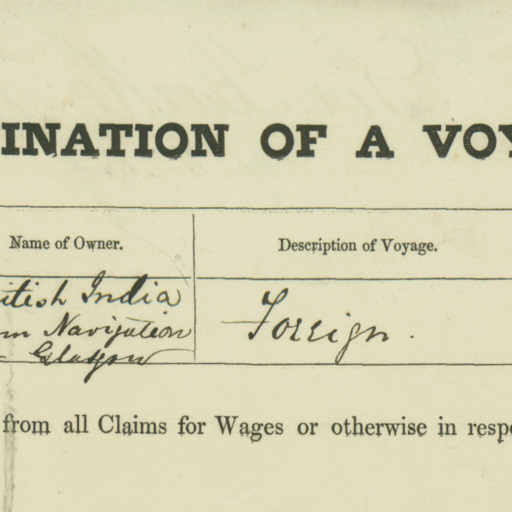 INATION OF A VOY
Name of Owner.
Description of Voyage.
itish India
m Navigation
Glasgow
Foreign.
from all Claims for Wages or otherwise in resp